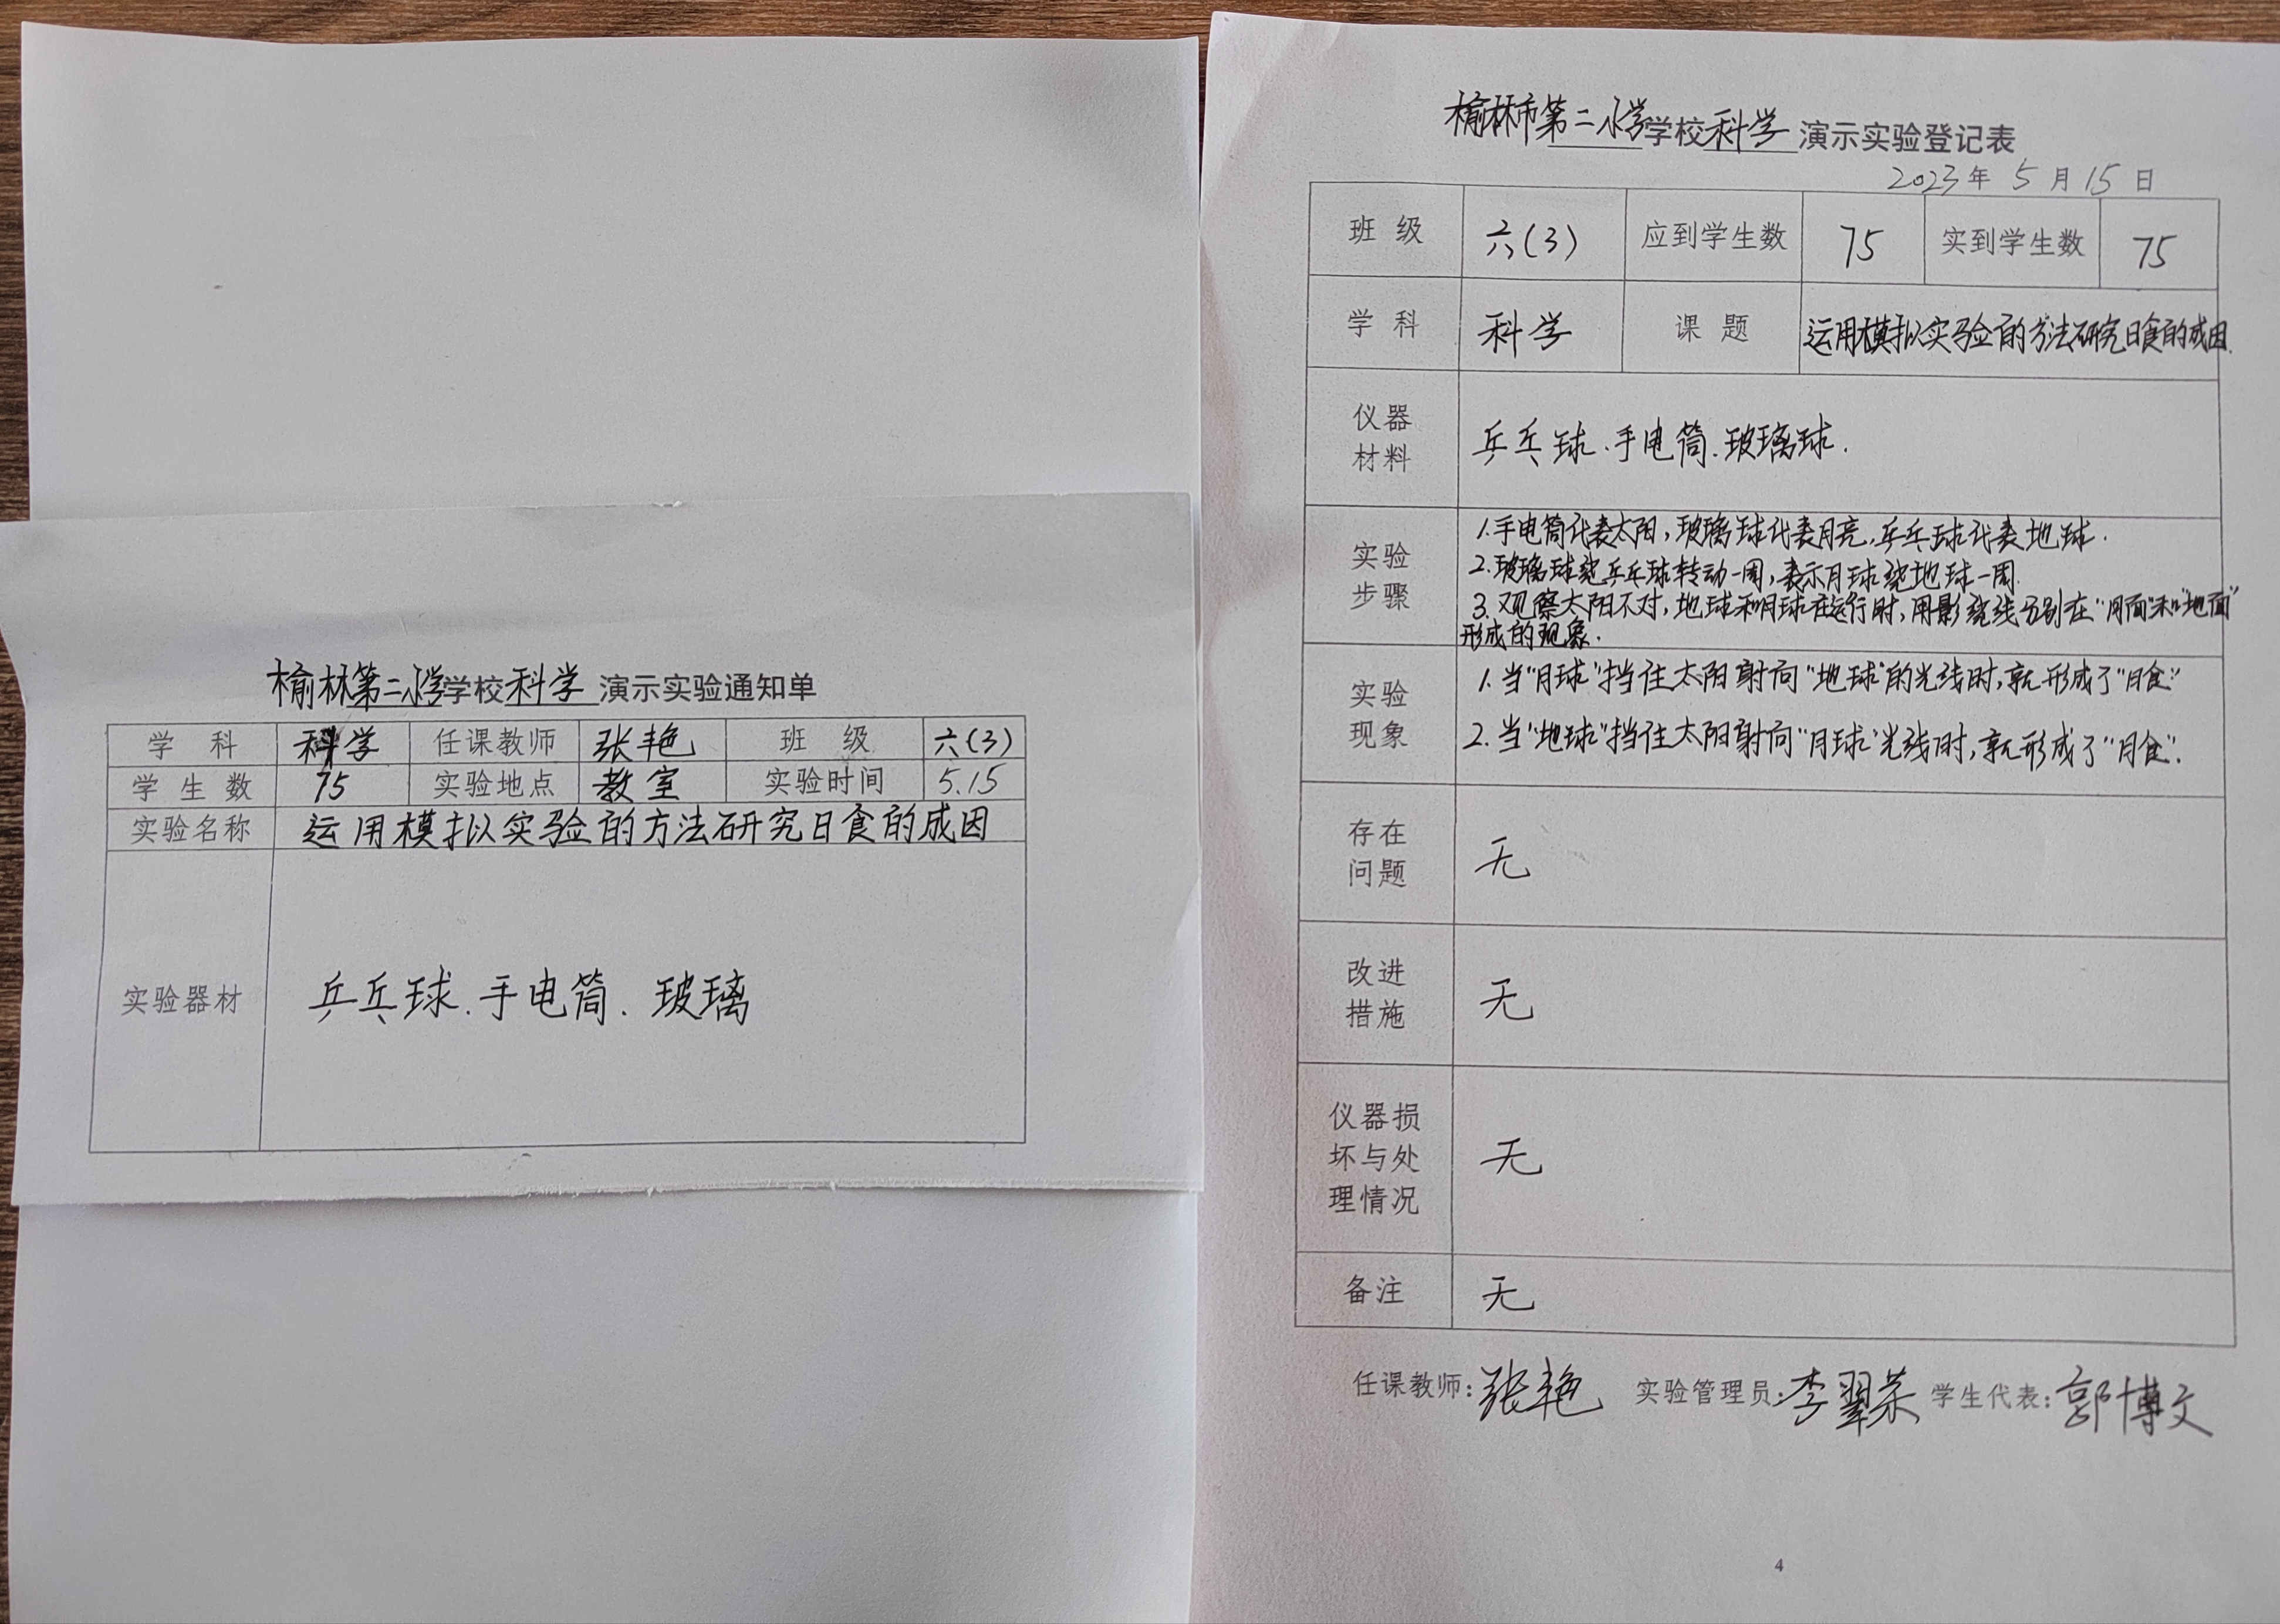 榆林第二小学学校科学演示实验通知单
学科 科学 任课教师 张艳 班级 六(3)
学生数 75 实验地点 教室 实验时间 5.15
实验名称 运用模拟实验的方法研究日食的成因
实验器材 乒乓球.手电筒.玻璃
榆林市第二小学学校科学演示实验登记表
2023年5月15日
班级 六(3) 应到学生数 75 实到学生数 75
学科 科学 课题 运用模拟实验的方法研究日食的成因.
仪器
材料
乒乓球.手电筒.玻璃球.
实验
步骤
1.手电筒代表太阳,玻璃球代表月亮,乒乓球代表地球.
2.玻璃球绕乒乓球转动一周,表示月球绕地球一周.
3.观察太阳不对,地球和月球在运行时,用影绕线分别在"月面"和"地面"
形成的现象.
实验
现象
1.当"月球"挡住太阳射向"地球"的光线时,就形成了"月食"
2.当"地球"挡住太阳射向"月球"光线时,就形成了"月食".
存在
问题
无
改进
措施
无
仪器损
坏与处
理情况
无
备注 无
任课教师:张艳 实验管理员:李翠荣 学生代表:郭博文
4